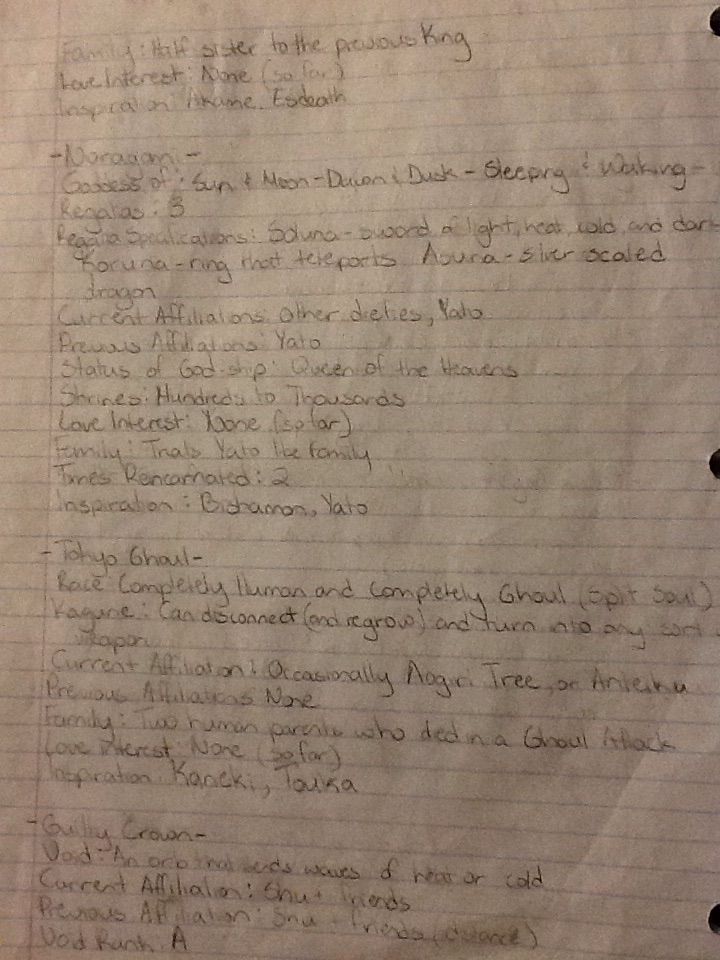 Family: Half sister to the previous King
Love Interest: None (so far)
Inspiration Akame, Esdeath
-Noragami-
Goddess of: Sun & Moon-Dawn & Dusk-Sleeping & Waking-
Regalias: 3
Regalia Specifications: Soluna-sword of light, heat, cold, and dark
Koruna-ring that teleports Asuna-silver scaled
dragon
Current Affiliations: Other dieties, Yato
Previous Affiliations: Yato
Status of God-ship: Queen of the Heavens
Shrines: Hundreds to Thousands
Love Interest: None (so far)
Family: Treats Yato like family
Times Reincarnated: 2
Inspiration: Bishamon, Yato
-Tokyo Ghoul-
Race: Completely Human and completely Ghoul (Split Soul)
Kagune: Can disconnect (and regrow) and turn into any sort
weapon
Current Affiliation: Occasionally Aogiri Tree, or Anteiku
Previous Affiliations None
Family: Two human parents who died in a Ghoul Attack
Love interest: None (so far)
Inspiration: Kaneki, Touka
-Guilty Crown-
Void: An orb that sends waves of heat or cold
Current Affiliation: Shu + friends
Previous Affiliation: Shu + friends (distance)
Void Rank: A